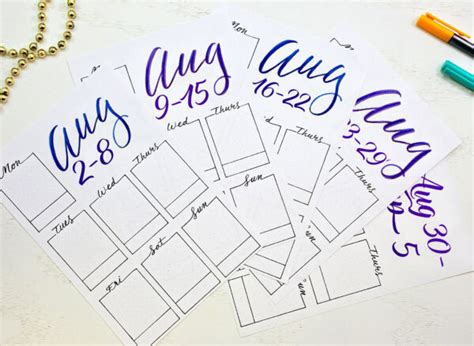 Aug
2-8
Mon
Tues
Wed
Thurs
Fri
Sat
Sun
Aug
9-15
Wed
Thurs
Sun
Aug
16-22
Thurs
Aug
3-29
Thurs
Aug 30-
5
Thurs